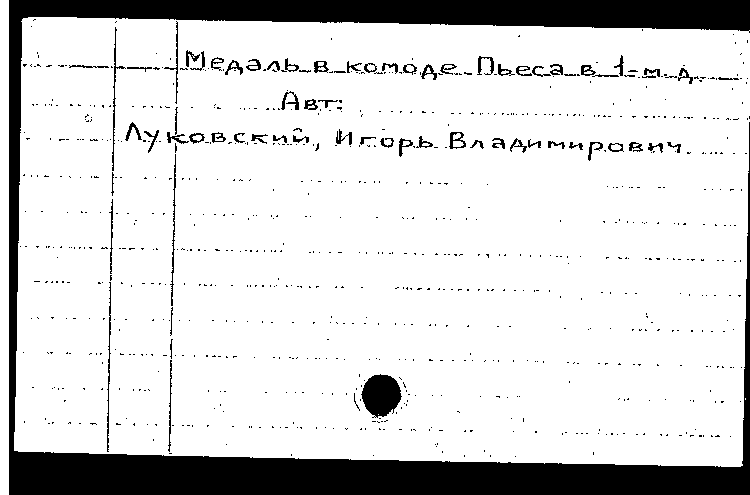 Медаль в комоде Пьеса в 1-м д.
Авт:
Луковский, Игорь Владимирович.